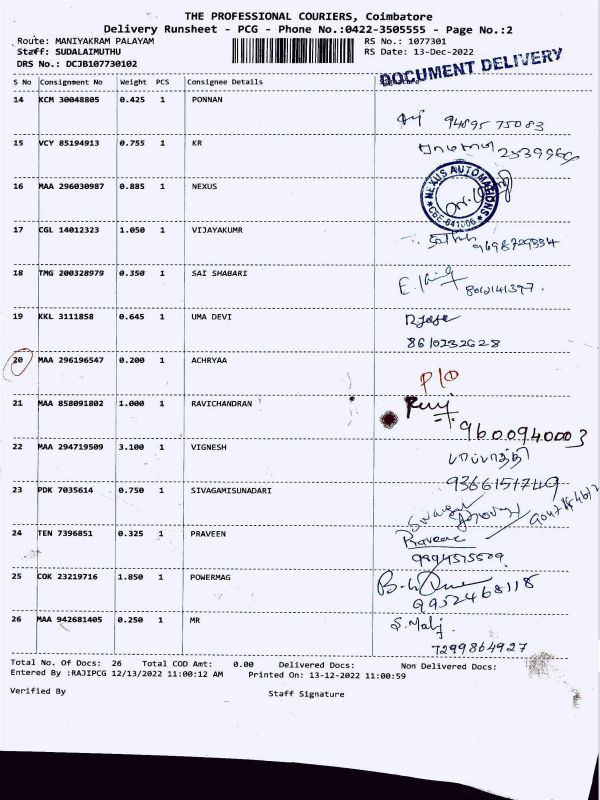 THE PROFESSIONAL COURIERS, Coimbatore
Delivery Runsheet - PCG - Phone No.:0422-3505555 - Page No.:2
Route: MANIYAKRAM PALAYAM RS No.: 1077301
Staff: SUDALAIMUTHU RS Date: 13-Dec-2022
DRS No.: DCJB107730102
DOCUMENT DELIVERY
S No Consignment No Weight PCS Consignee Details Signature
14 KCM 30048805 0.425 1 PONNAN
94895 75083
15 VCY 85194913 0.755 1 KR
16 MAA 296030987 0.885 1 NEXUS
NEXUS AUTOMATIONS
CBE-641006
17 CGL 14012323 1.050 1 VIJAYAKUMR
9698729334
18 TMG 200328979 0.350 1 SAI SHABARI
8012141397.
19 KKL 3111858 0.645 1 UMA DEVI
8610232628
20 MAA 296196547 0.200 1 ACHRYAA
21 MAA 858091802 1.000 1 RAVICHANDRAN
9600940003
22 MAA 294719509 3.100 1 VIGNESH
பாப்பாத்தி
9366151749
23 PDK 7035614 0.750 1 SIVAGAMISUNADARI
24 TEN 7396851 0.325 1 PRAVEEN
Praveen
9994575509
25 COK 23219716 1.850 1 POWERMAG
9952468118
26 MAA 942681405 0.250 1 MR
7299864927
Total No. Of Docs: 26 Total COD Amt: 0.00 Delivered Docs: Non Delivered Docs:
Entered By :RAJIPCG 12/13/2022 11:00:12 AM Printed On: 13-12-2022 11:00:59
Verified By Staff Signature